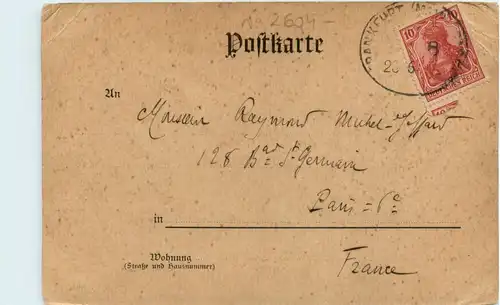 No 2694-
Postkarte
FRANKFURT (MAIN)
10 10
DEUTSCHES REICH
An
Monsieur Raymond Michel-Giffard
128 Bd St Germain
Paris - 6e
in
Wohnung
(Straße und Hausnummer)
France